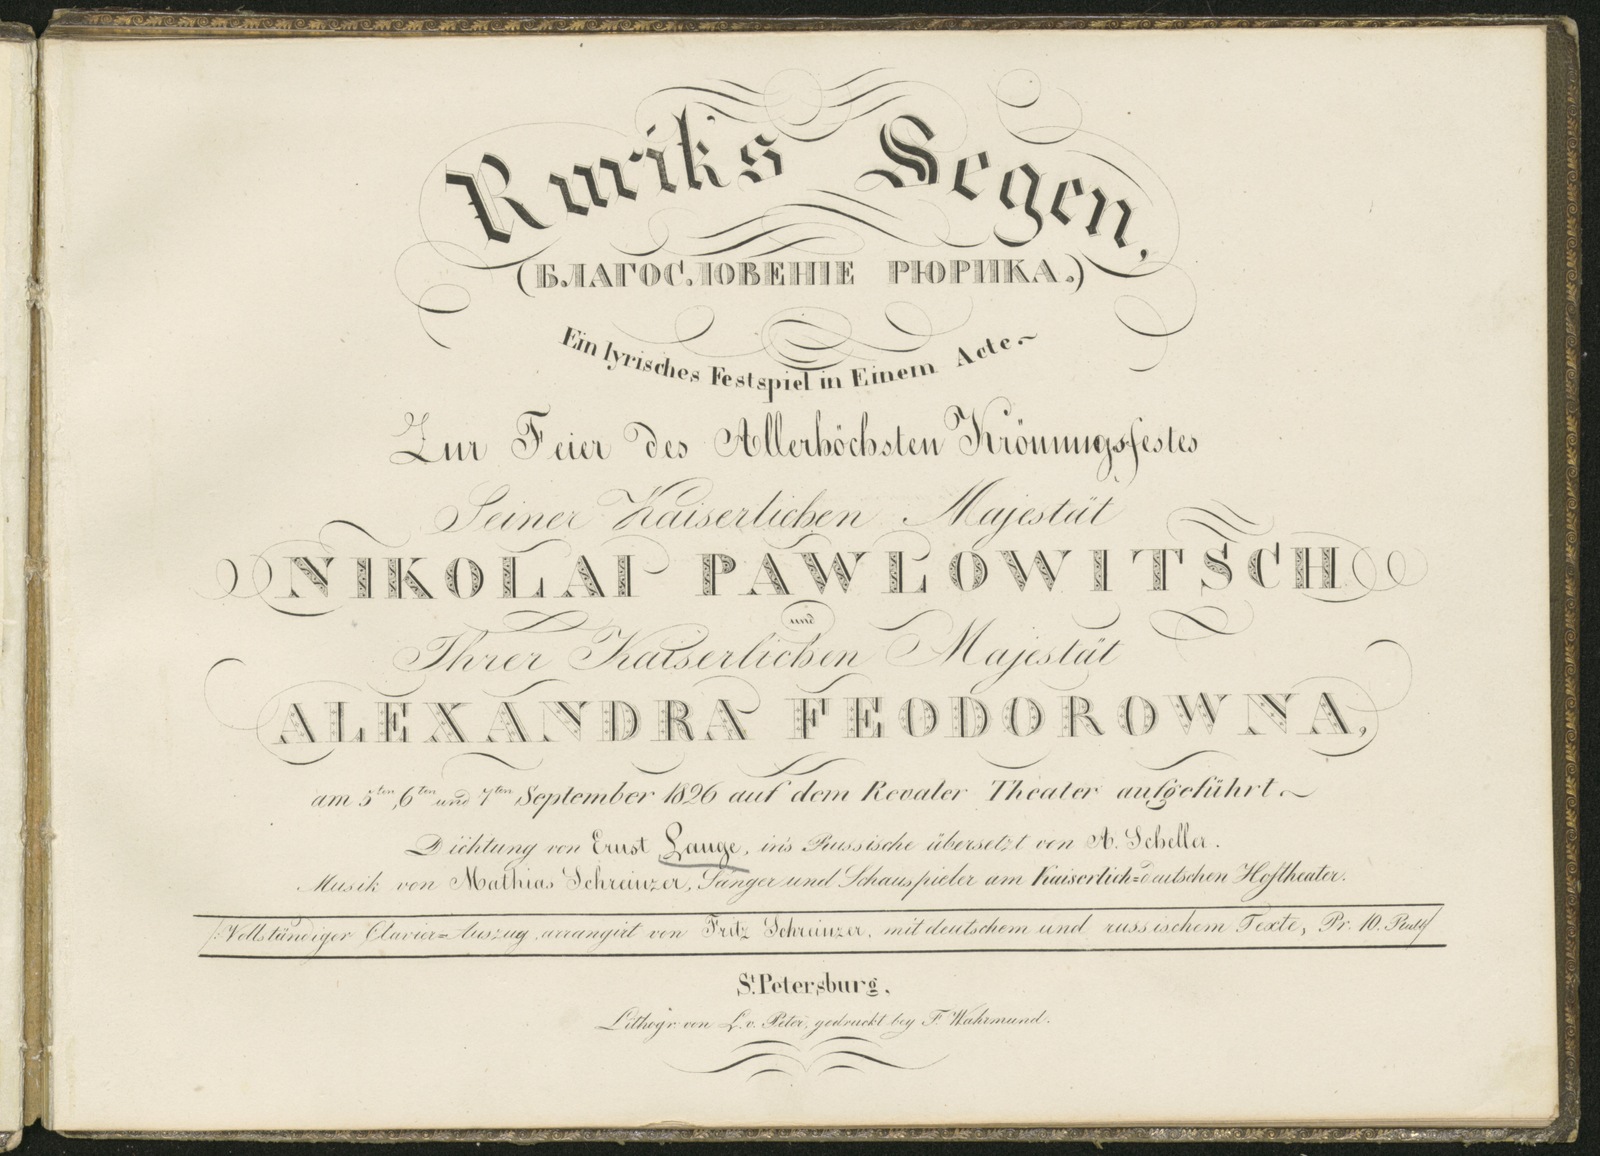 Ruriks Segen,
(БЛАГОСЛОВЕНІЕ РЮРИКА.)
Ein lyrisches Festspiel in Einem Acte
Zur Feier des Allerhöchsten Krönungsfestes
Seiner Kaiserlichen Majestät
NIKOLAI PAWLOWITSCH
und
Ihrer Kaiserlichen Majestät
ALEXANDRA FEODOROWNA,
am 5ten, 6ten und 7ten September 1826 auf dem Revaler Theater aufgeführt.
Dichtung von Ernst Lange, in's Russische übersetzt von A. Scheller.
Musik von Mathias Schreinzer, Sänger und Schauspieler am Kaiserlich=deutschen Hoftheater.
Vollständiger Clavier=Auszug, arrangirt von Fritz Schreinzer, mit deutschem und russischem Texte, Pr. 10.
St. Petersburg.
Lithogr: von L. v. Peter, gedruckt bey F. Wahrmund.